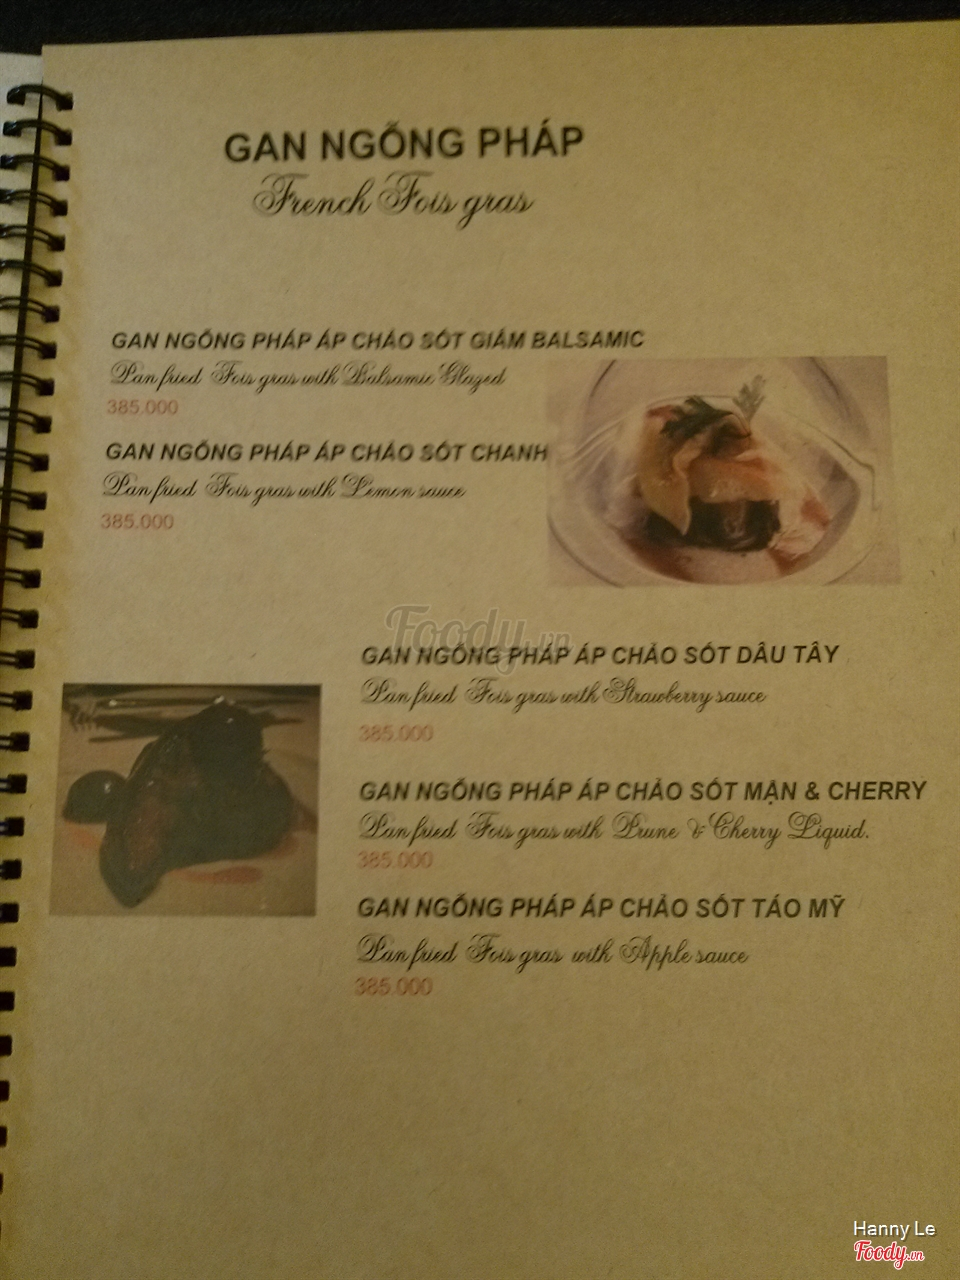 GAN NGỖNG PHÁP
French Fois gras
GAN NGỖNG PHÁP ÁP CHẢO SỐT GIẤM BALSAMIC
Pan fried Fois gras with Balsamic Glazed
385.000
GAN NGỖNG PHÁP ÁP CHẢO SỐT CHANH
Pan fried Fois gras with Lemon sauce
385.000
Foody.vn
GAN NGỖNG PHÁP ÁP CHẢO SỐT DÂU TÂY
Pan fried Fois gras with Strawberry sauce
385.000
GAN NGỖNG PHÁP ÁP CHẢO SỐT MẬN & CHERRY
Pan fried Fois gras with Prune & Cherry Liquid.
385.000
GAN NGỖNG PHÁP ÁP CHẢO SỐT TÁO MỸ
Pan fried Fois gras with Apple sauce
385.000
Hanny Le
Foody.vn